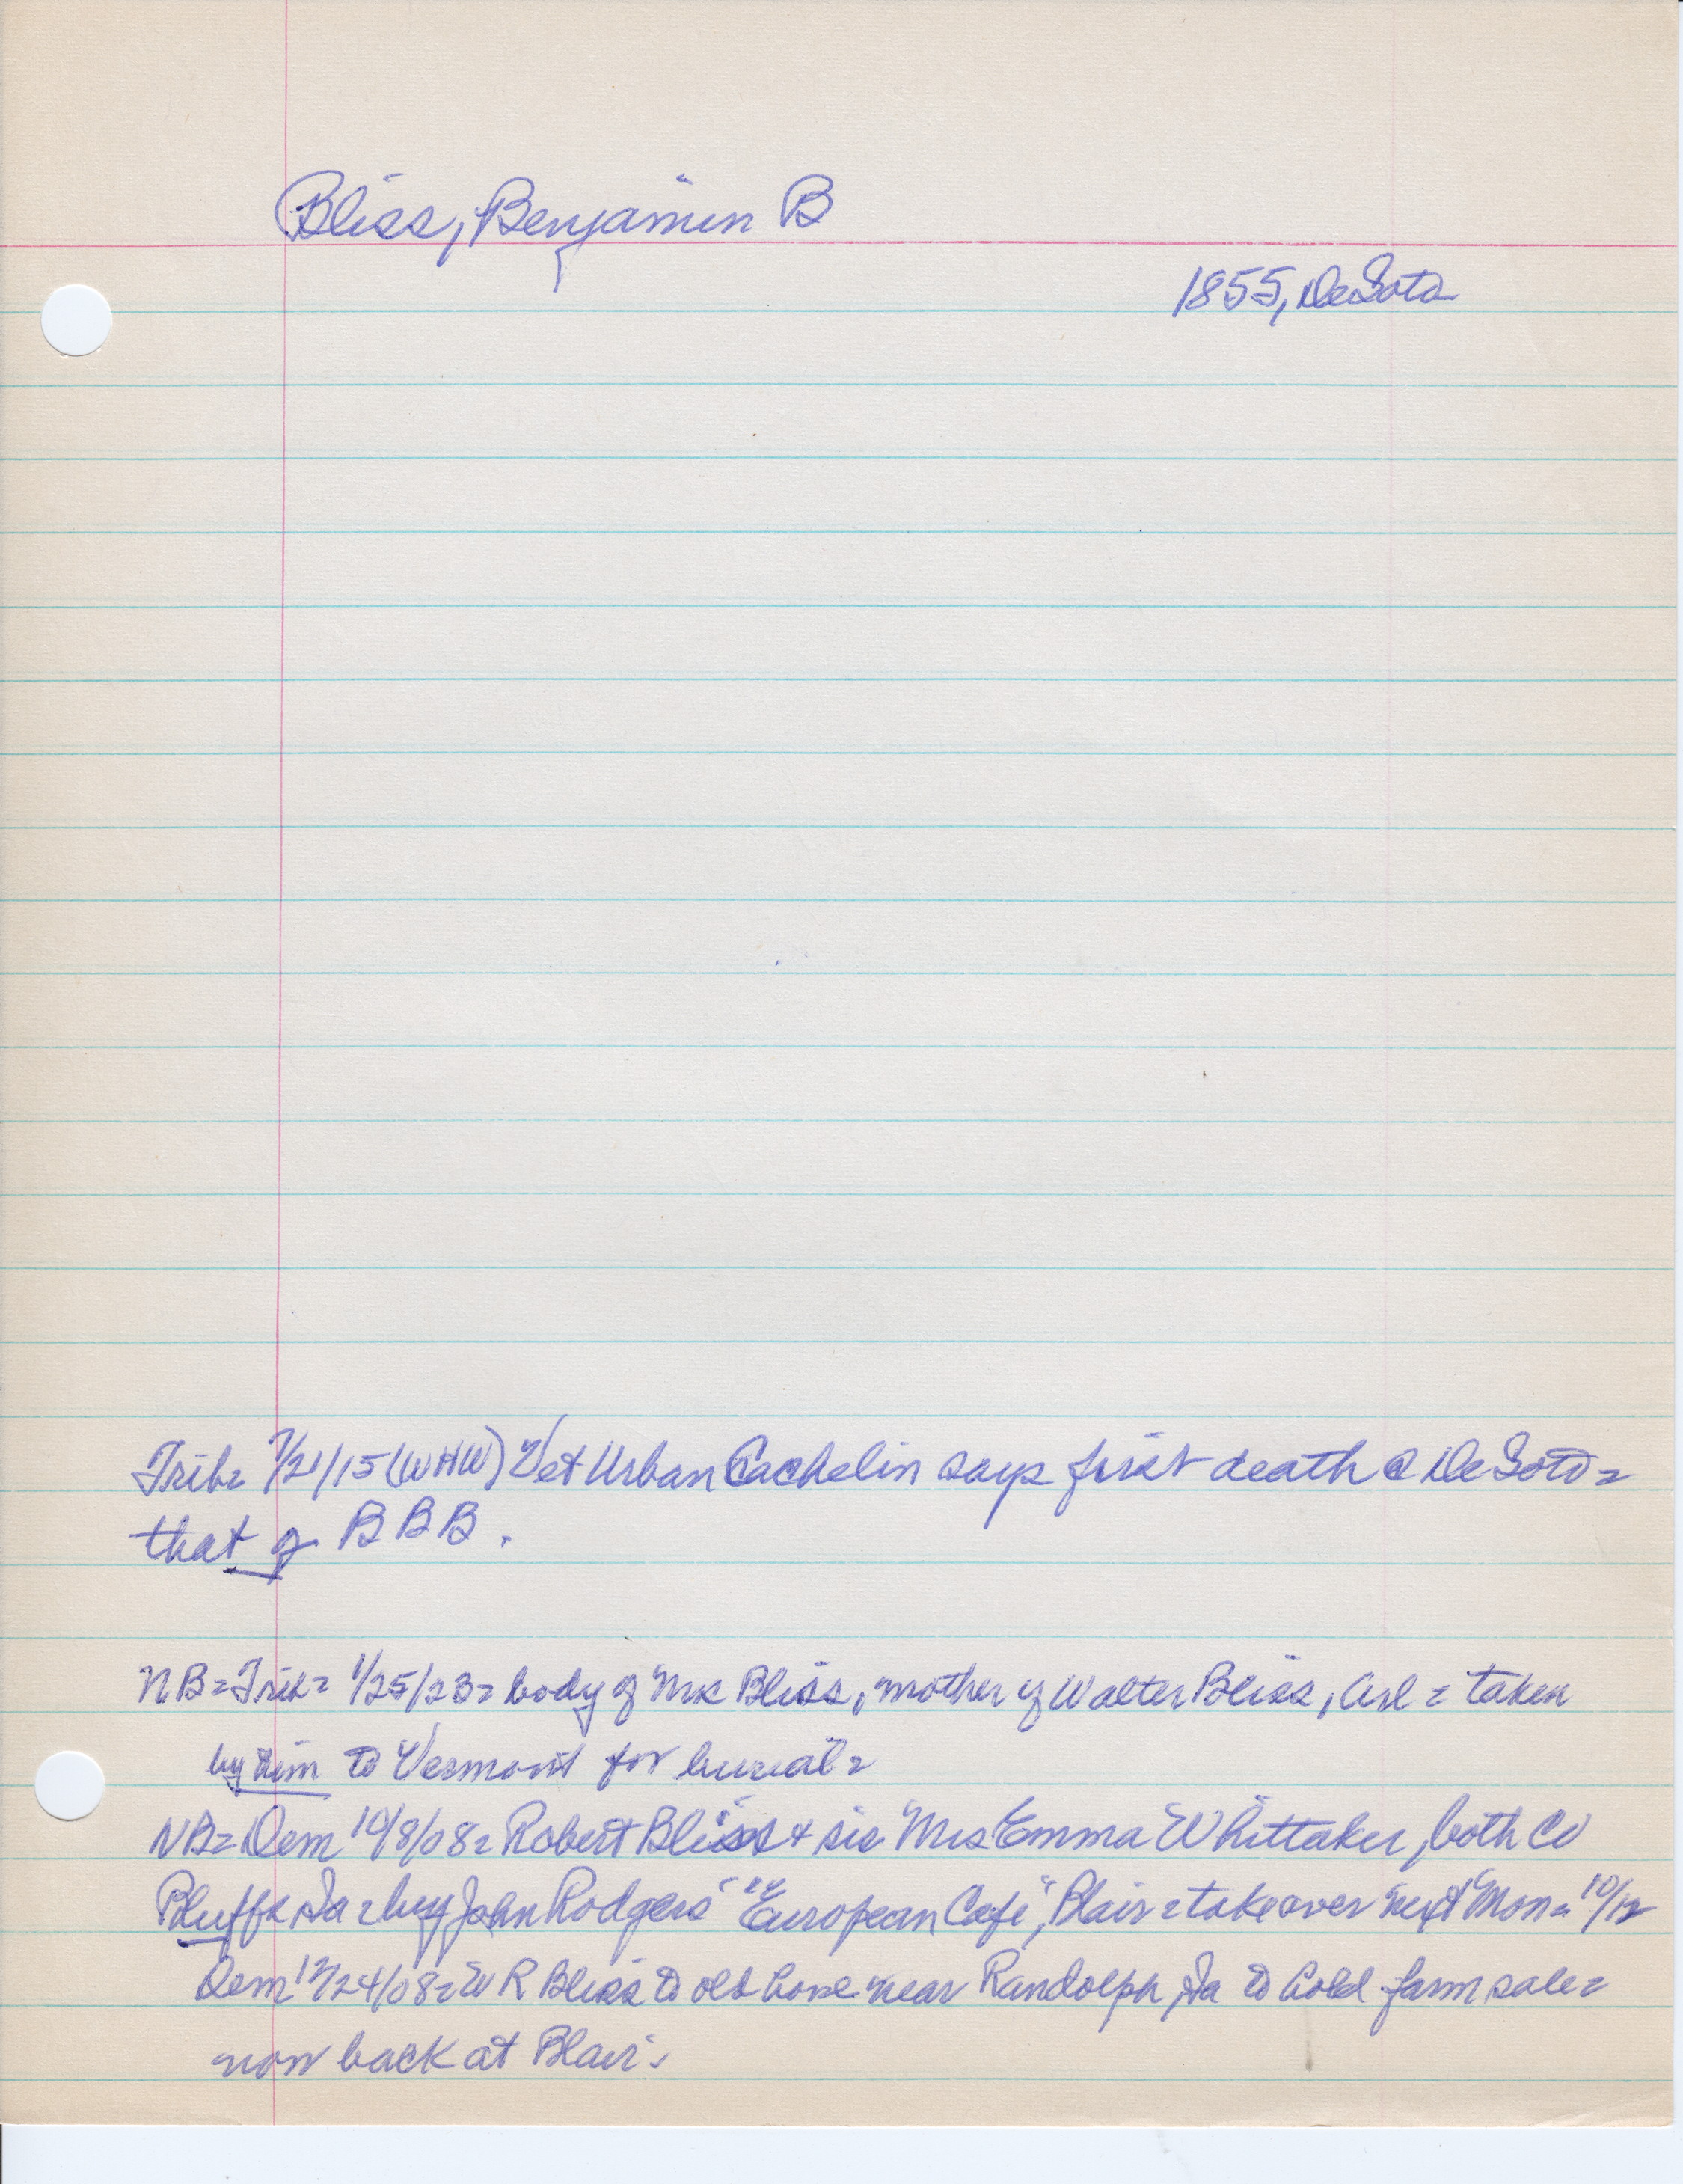 Bliss, Benjamin B
1855, DeSoto
Trib= 7/21/15 (WHW) Vet Urban Cachelin says first death @ DeSoto=
that of BBB.
NB=Trib= 1/25/23= body of Mrs Bliss, mother of Walter Bliss, Arl= taken
by him to Vermont for burial=
NB=Dem 10/8/08= Robert Bliss + sis Mrs Emma Whittaker, both Co
Bluffs Ia= buy John Rodgers' "European Cafe", Blair= take over next Mon= 10/12
Dem 12/24/08= W R Bliss to old home near Randolph, Ia to hold farm sale=
now back at Blair.